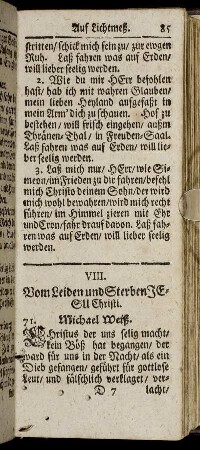 Auf Lichtmeß. 85
stritten/ schick mich fein zu/ zur ewgen
Ruh. Laß fahren was auf Erden/
will lieber seelig werden.
2. Wie du mir HErr befohlen
hast/ hab ich mit wahren Glauben/
mein lieben Heyland aufgefaßt in
mein Arm dich zu schauen. Hof zu
bestehen/ will frisch eingehen/ außm
Thränen-Thal/ in Freuden-Saal.
Laß fahren was auf Erden/ will lie-
ber seelig werden.
3. Laß mich nur/ HErr/ wie Si-
meon/ im Frieden zu dir fahren/ befehl
mich Christo deinem Sohn/ der wird
mich wohl bewahren/ wird mich recht
führen/ im Himmel zieren mit Ehr
und Cron/ fahr drauf davon. Laß fah-
ren was auf Erden/ will lieber seelig
werden.
VIII.
Vom Leiden und Sterben JE-
SU Christi.
71. Michael Weiß.
CHristus der uns selig macht/
kein Böß hat begangen/ der
ward für uns in der Nacht/ als ein
Dieb gefangen/ geführt für gottlose
Leut/ und fälschlich verklaget/ ver-
D 7 lacht/